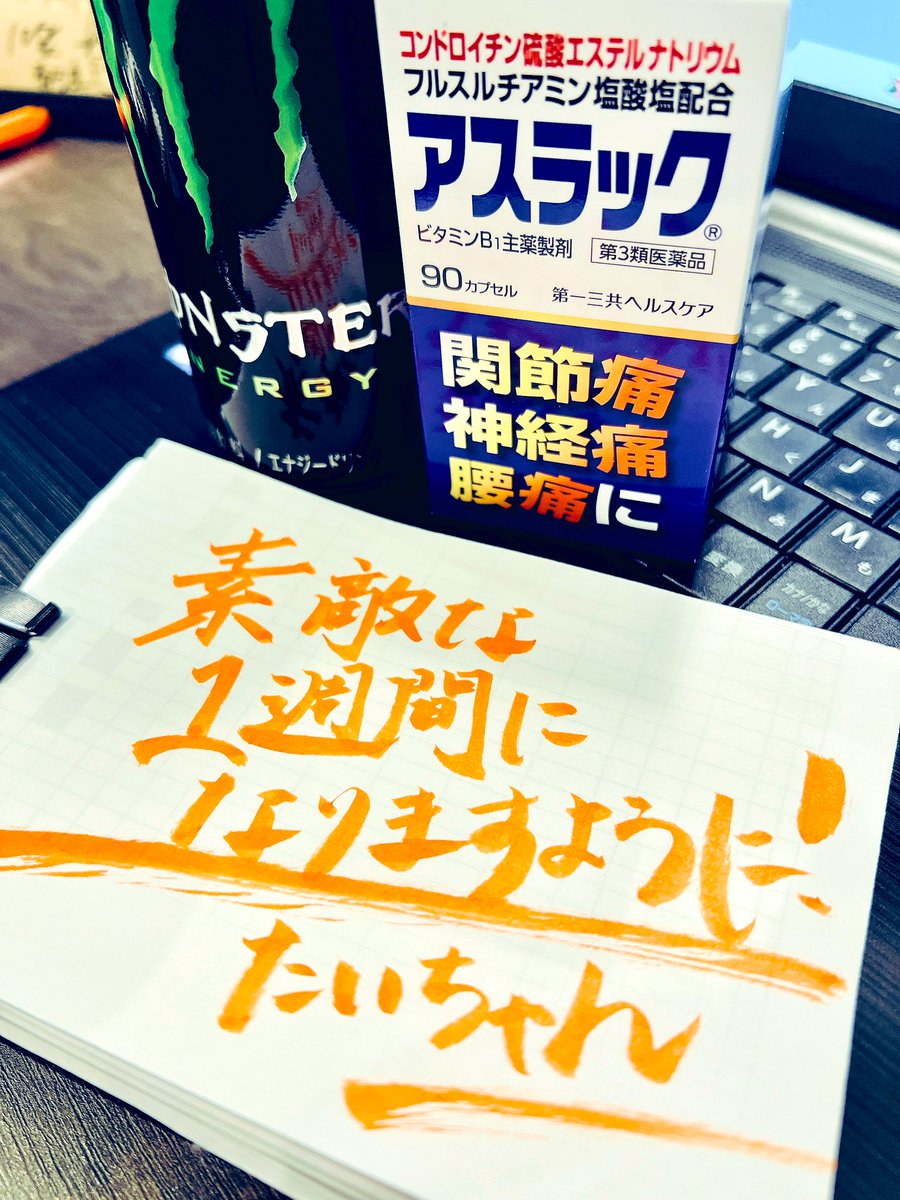 MONSTER
ENERGY
エナジードリンク
コンドロイチン硫酸エステルナトリウム
フルスルチアミン塩酸塩配合
アスラック®
ビタミンB1主薬製剤 第3類医薬品
90カプセル 第一三共ヘルスケア
関節痛
神経痛
腰痛に
Y
U
H く
J ま
N み
M も
変換
カタカナ
ひらがな
素敵な
1週間に
なりますように!
たいちゃん